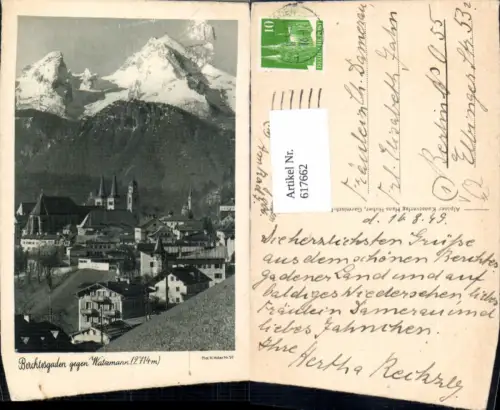 Berchtesgaden gegen Watzmann (2714m)
10
Artikel Nr.
617662
Fräulein Ch. Damerau
Frl. Elisabeth Jahn
Berlin
d. 16.8.49.
Die herzlichsten Grüße
aus dem schönen Berchtes
gadener Land und auf
baldiges Wiedersehen liebe
Fräulein Damerau und
liebes Jahnchen.
Ihre
Hertha